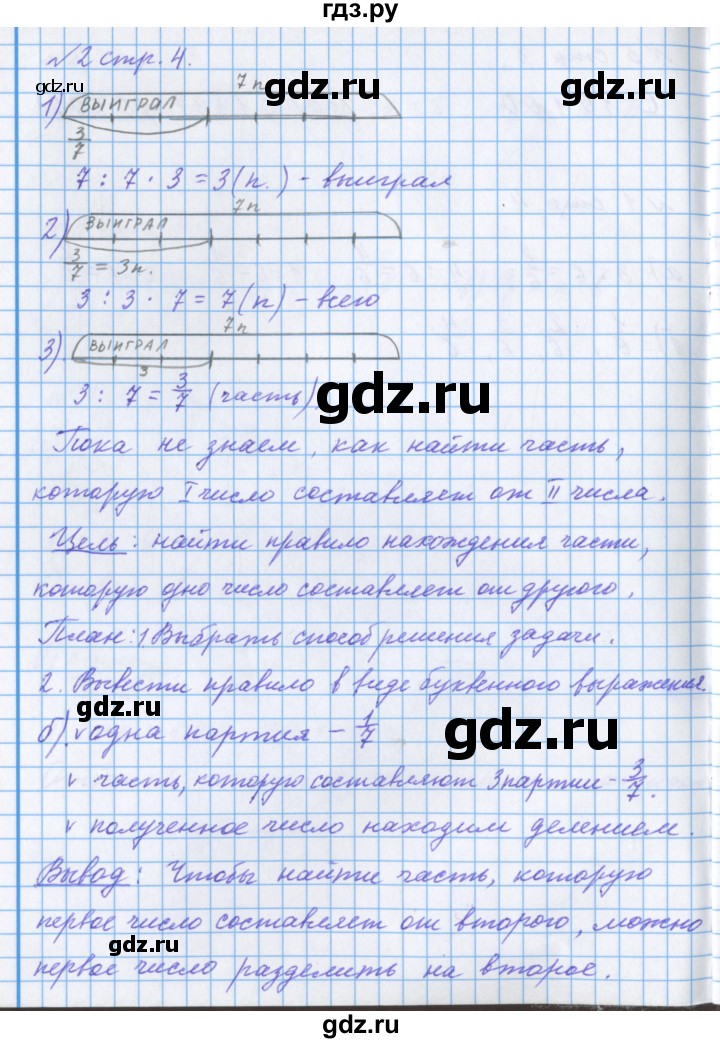 гдз.ру
№2 стр. 4.
gdz.ru
gdz.ru
gdz.ru
7п
1) ВЫИГРАЛ
3/7
7 : 7 · 3 = 3 (п.) - выиграл
7п
2) ВЫИГРАЛ
3/7 = 3п.
3 : 3 · 7 = 7 (п) - всего
7п
3). ВЫИГРАЛ
3
3 : 7 = 3/7 (часть)
gdz.ru
gdz.ru
Пока не знаем, как найти часть,
которую I число составляет от II числа.
Цель: найти правило нахождения части,
которую одно число составляет от другого.
План: 1 Выбрать способ решения задачи.
2. Вывести правило в виде буквенного выражения.
gdz.ru
gdz.ru
б) v одна партия - 1/7
v часть, которую составляют 3 партии - 3/7.
v полученное число находим делением.
Вывод: Чтобы найти часть, которую
первое число составляет от второго, можно
gdz.ru
первое число разделить на второе.
gdz.ru